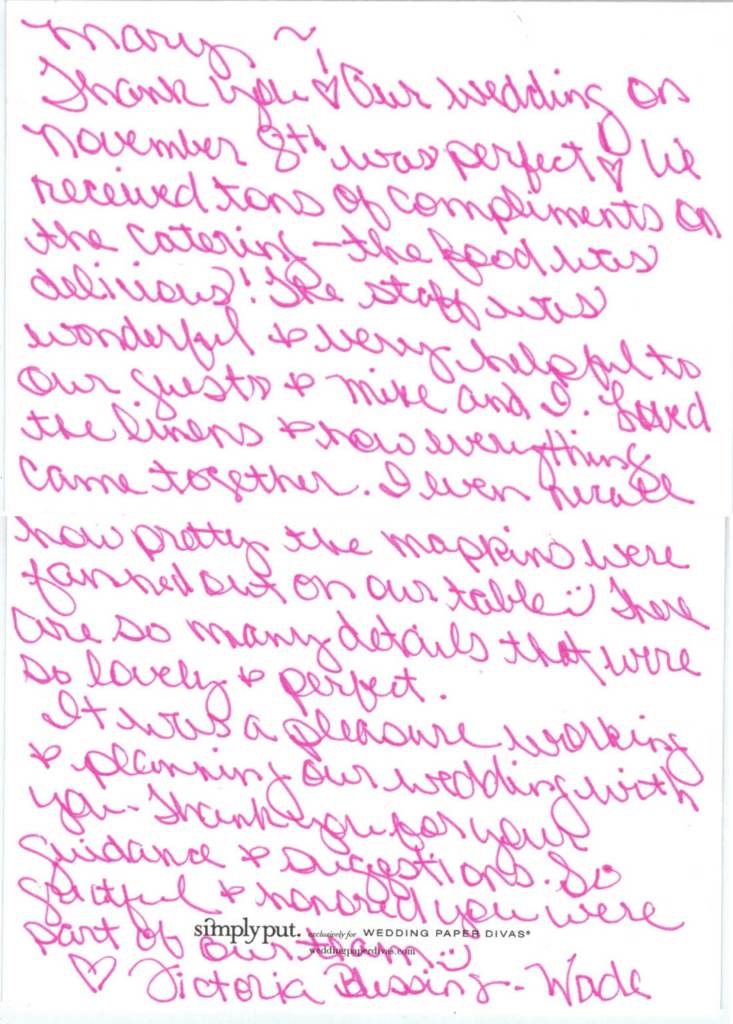 Mary ~
Thank you! ♡ Our wedding on
November 8th was perfect ♡ We
received tons of compliments on
the catering - the food was
delicious! The staff was
wonderful & very helpful to
our guests & Mike and I. Loved
the linens & how everything
came together. I even
how pretty the napkins were
fanned out on our table :) There
are so many details that were
so lovely & perfect.
It was a pleasure working
& planning our wedding with
you - Thank you for your
guidance & suggestions. So
grateful & honored you were
part of our team :)
simply put. exclusively for WEDDING PAPER DIVAS®
weddingpaperdivas.com
♡ Victoria Blessing - Wade